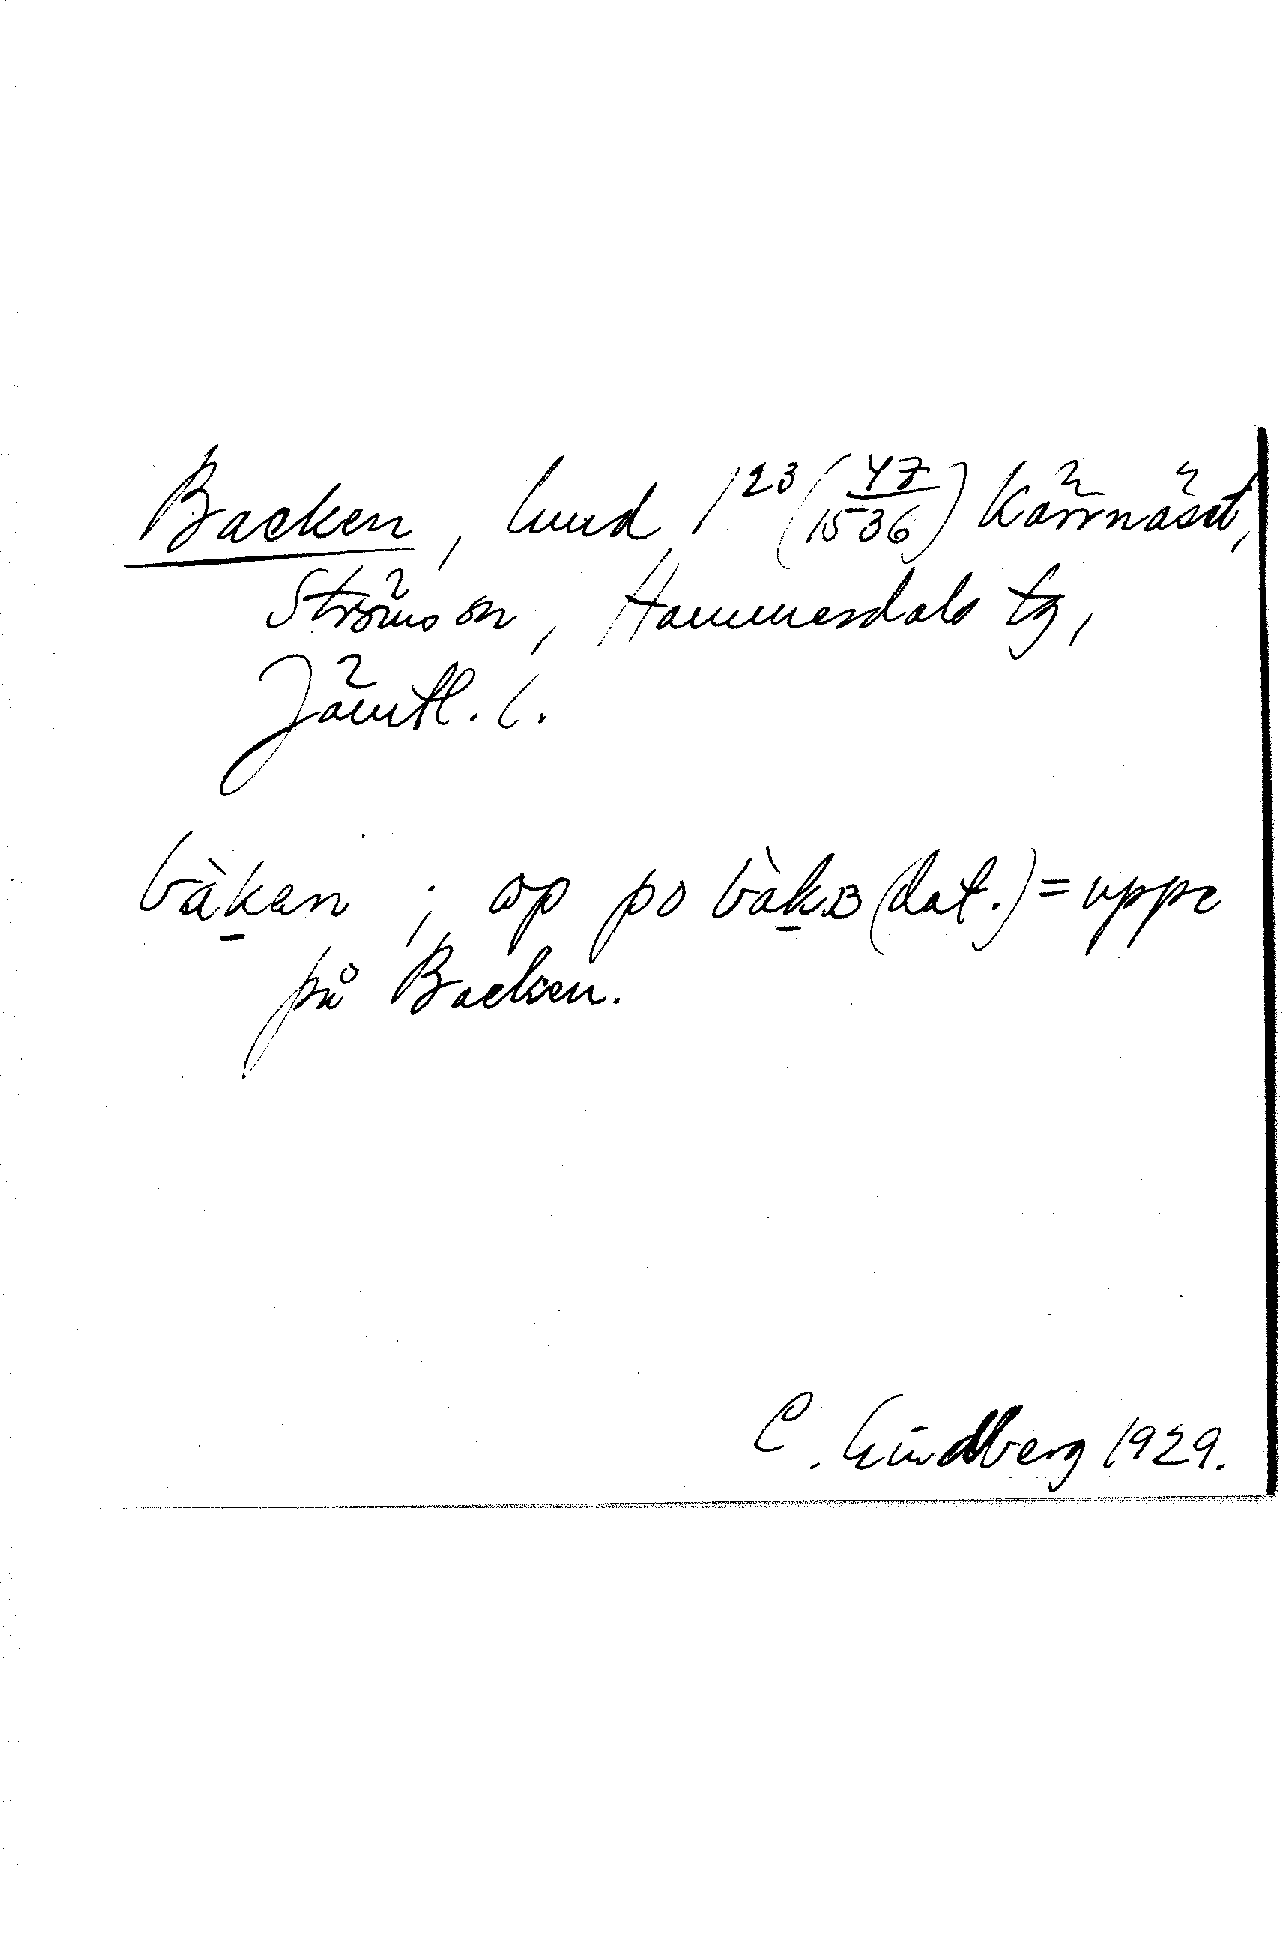 Backen, hmd 1²³ (47/1536) Kärrnäset,
Ströms sn, Hammerdals tg,
Jämtl. l.
bàkan ; op po bàkB (dat.) = uppe
på Backen.
C. Lindberg 1929.